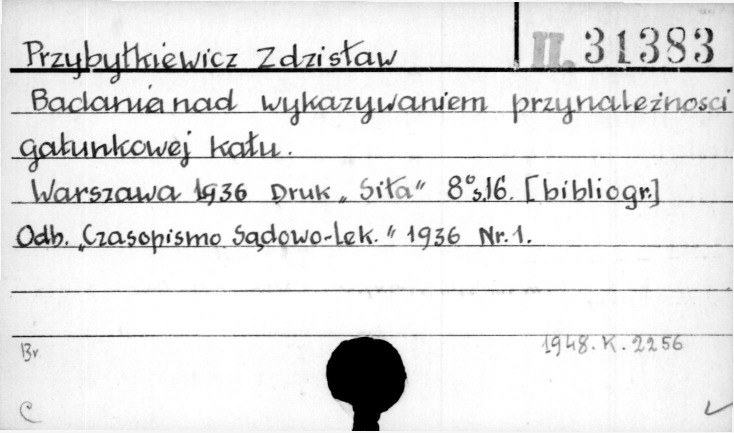 Przybyłkiewicz Zdzisław
II. 31383
Badania nad wykazywaniem przynależności
gatunkowej kału.
Warszawa 1936 Druk „Siła" 8°s.16. [bibliogr.]
Odb. „Czasopismo Sądowo-Lek." 1936 Nr. 1.
Br.
1948. K. 2256
C